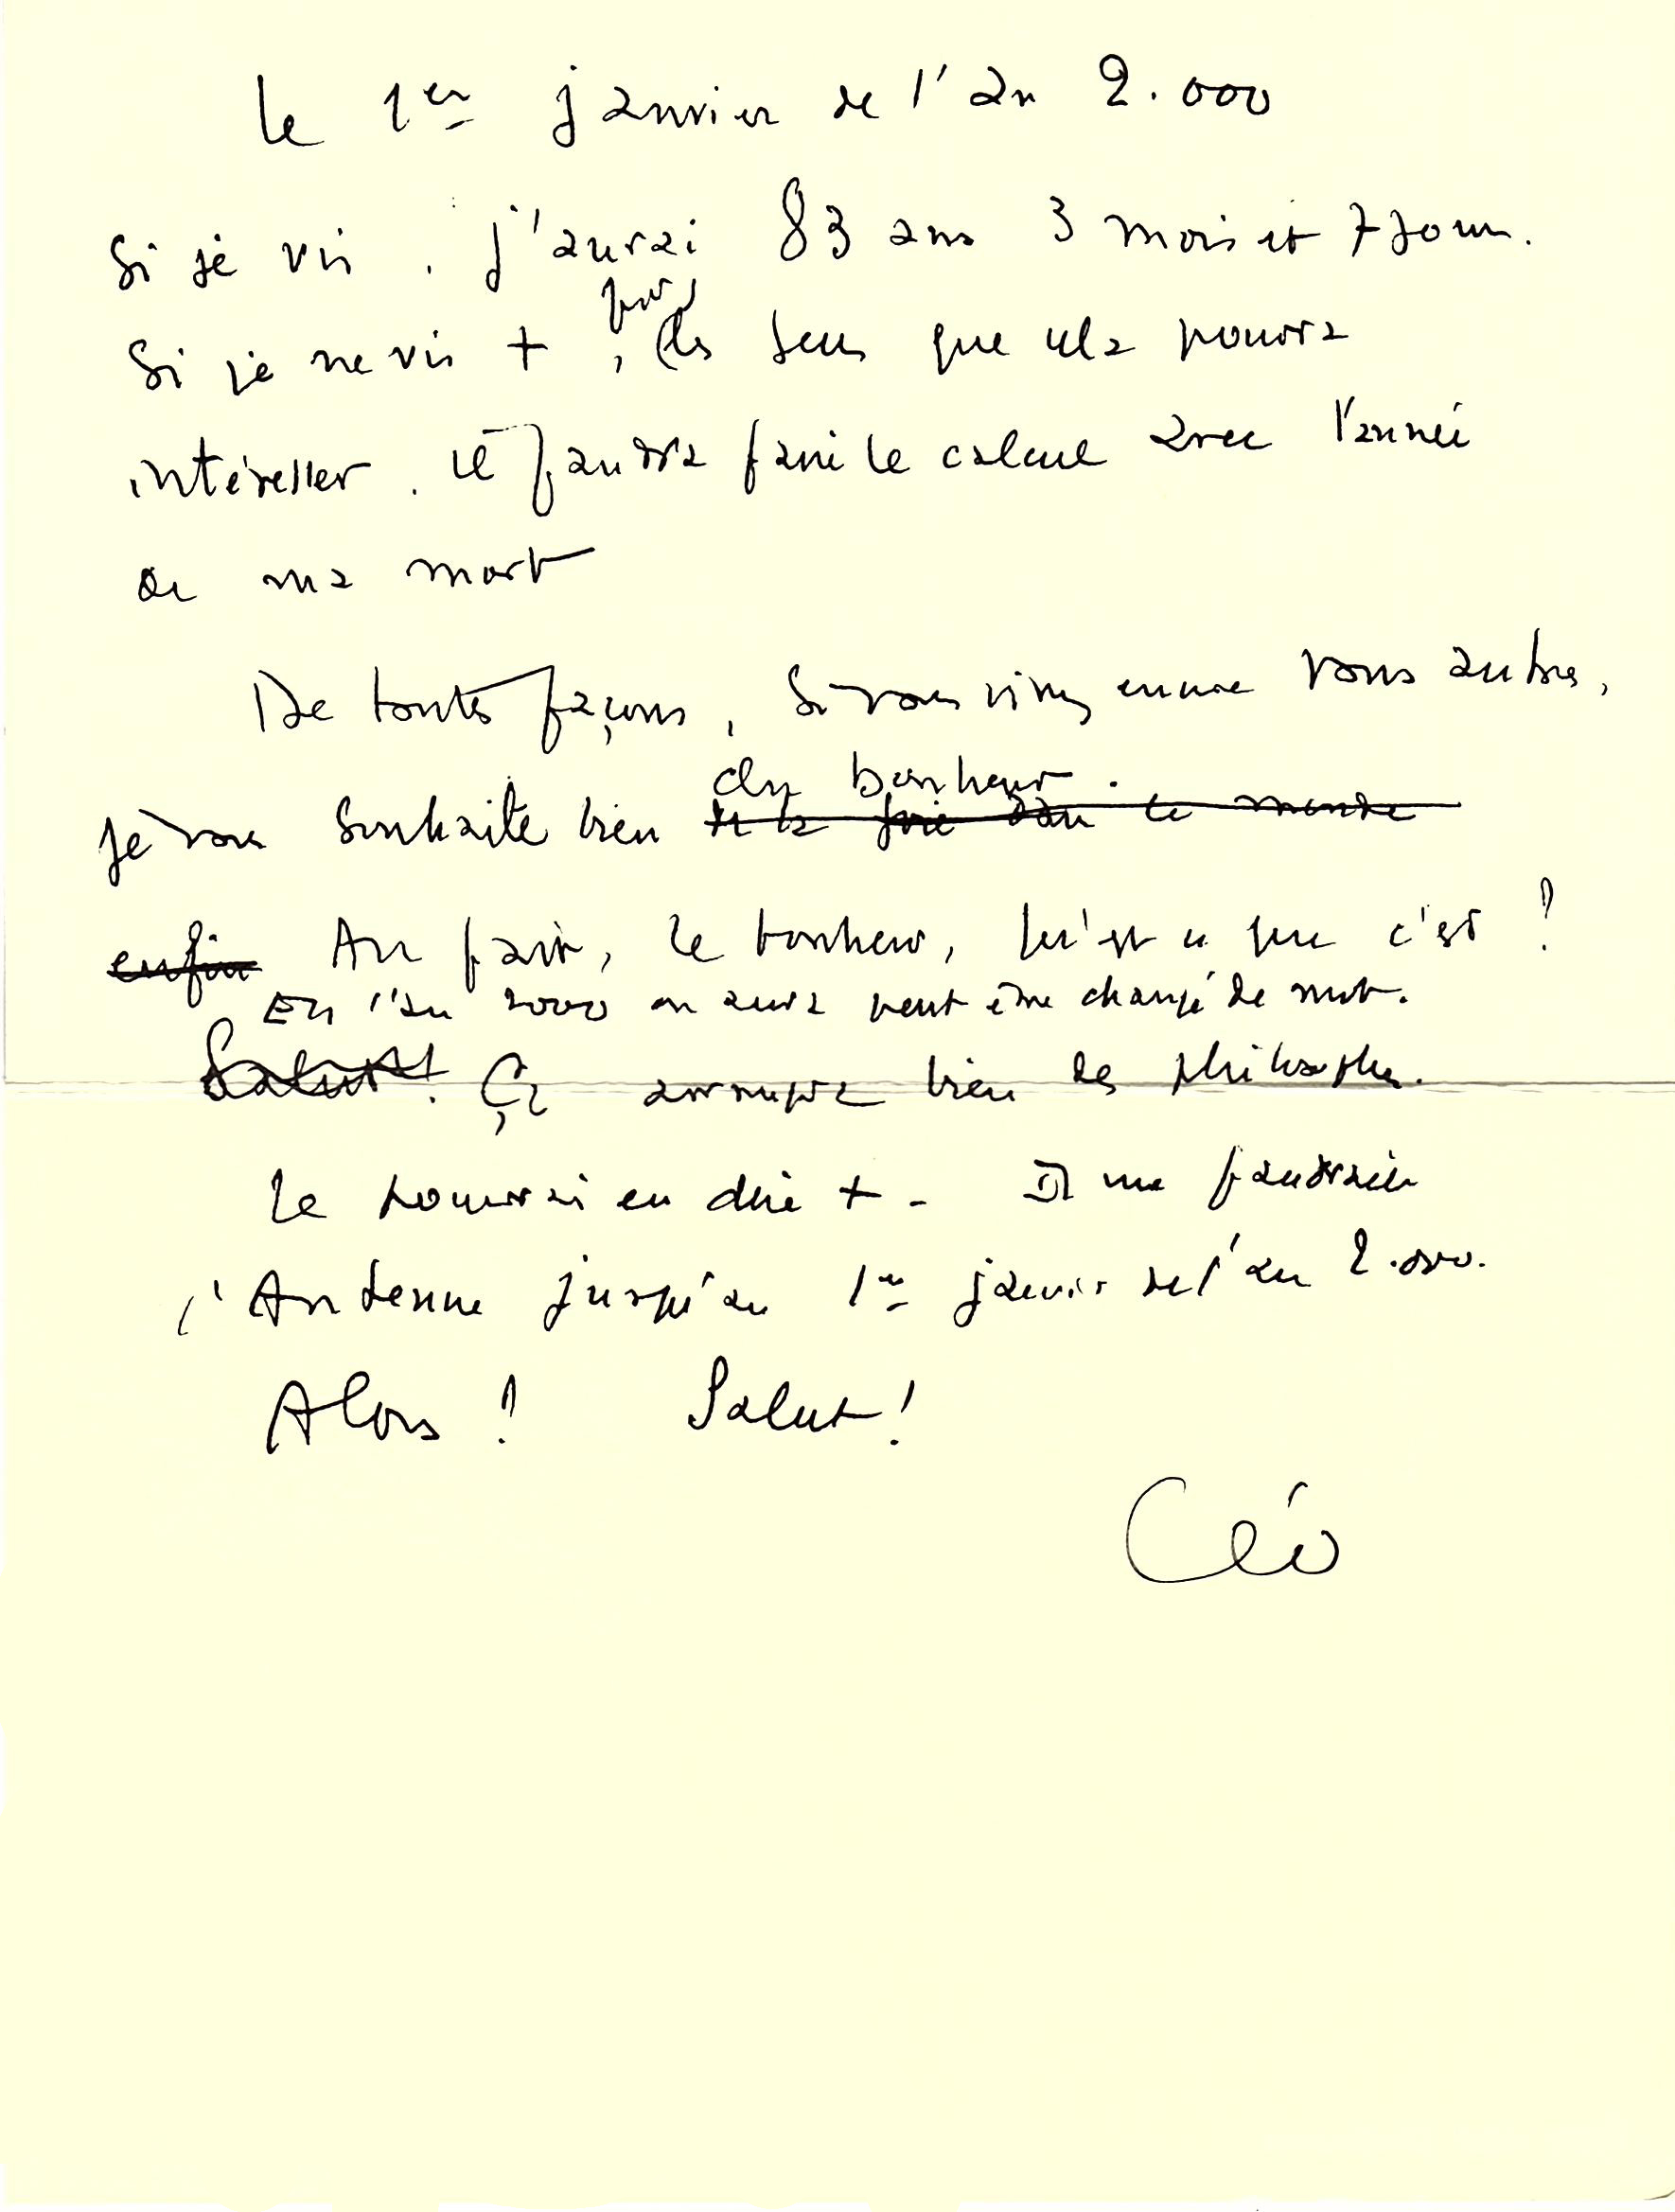 le 1er janvier de l'an 2.000
Si je vis . j'aurai 83 ans 3 mois et 7 jours.
pour
Si je ne vis + , les gens que cela pourra
intéresser . il faudra faire le calcul avec l'année
de ma mort
De toutes façons, si vous vivez encore vous autres,
du bonheur .
je vous souhaite bien et la joie dans le monde
enfin Au fait, le bonheur, qu'est ce que c'est ?
En l'an 2000 on aura peut être changé de mot.
Salut ! Ça occupera bien les philosophes.
Je pourrai en dire + - Il me faudrait
l'Antenne jusqu'au 1er janvier de l'an 2.000.
Alors ! Salut !
Cléo